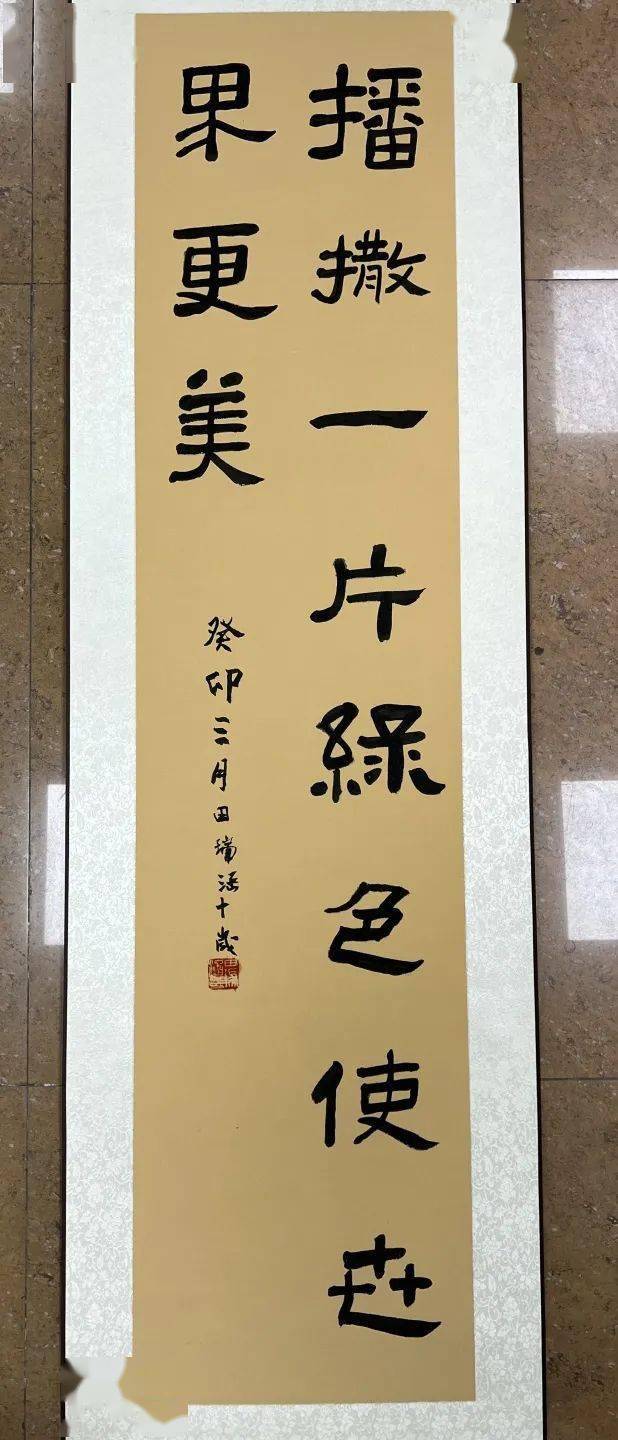 播撒一片綠色使世
界更美
癸卯三月田瑞涵十歲